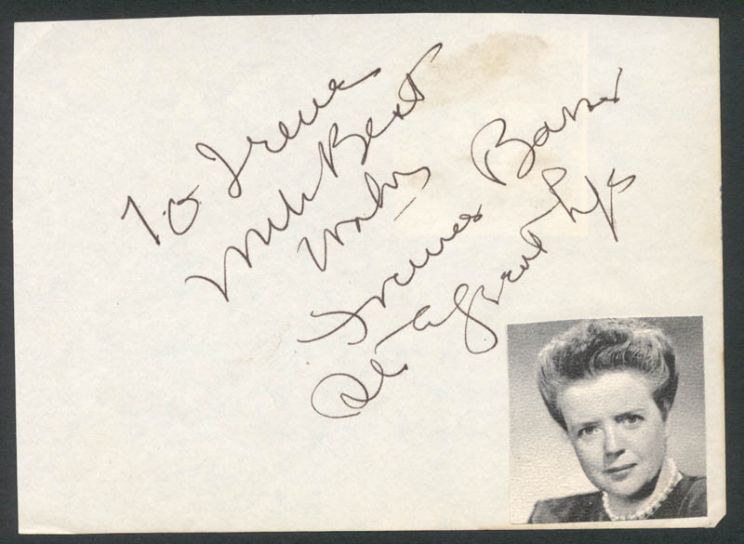 To Irene
With Best
Wishes
Frances Bavier
a great life